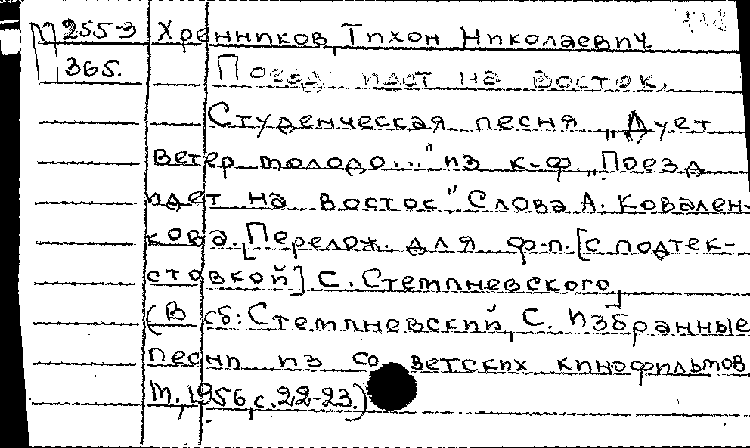 М 255-3 Хренников, Тихон Николаевич
365. Поезд идет на восток.
Студенческая песня „Дует
ветер молодо..." из к-ф „Поезд
идет на восток" Слова А. Ковален-
кова. [Перелож. для ф-п. [с подтек-
стовкой] С. Стемпневского,
(В сб: Стемпневский, С. Избранные
песни из советских кинофильмов
М., 1956, с. 22-23.)